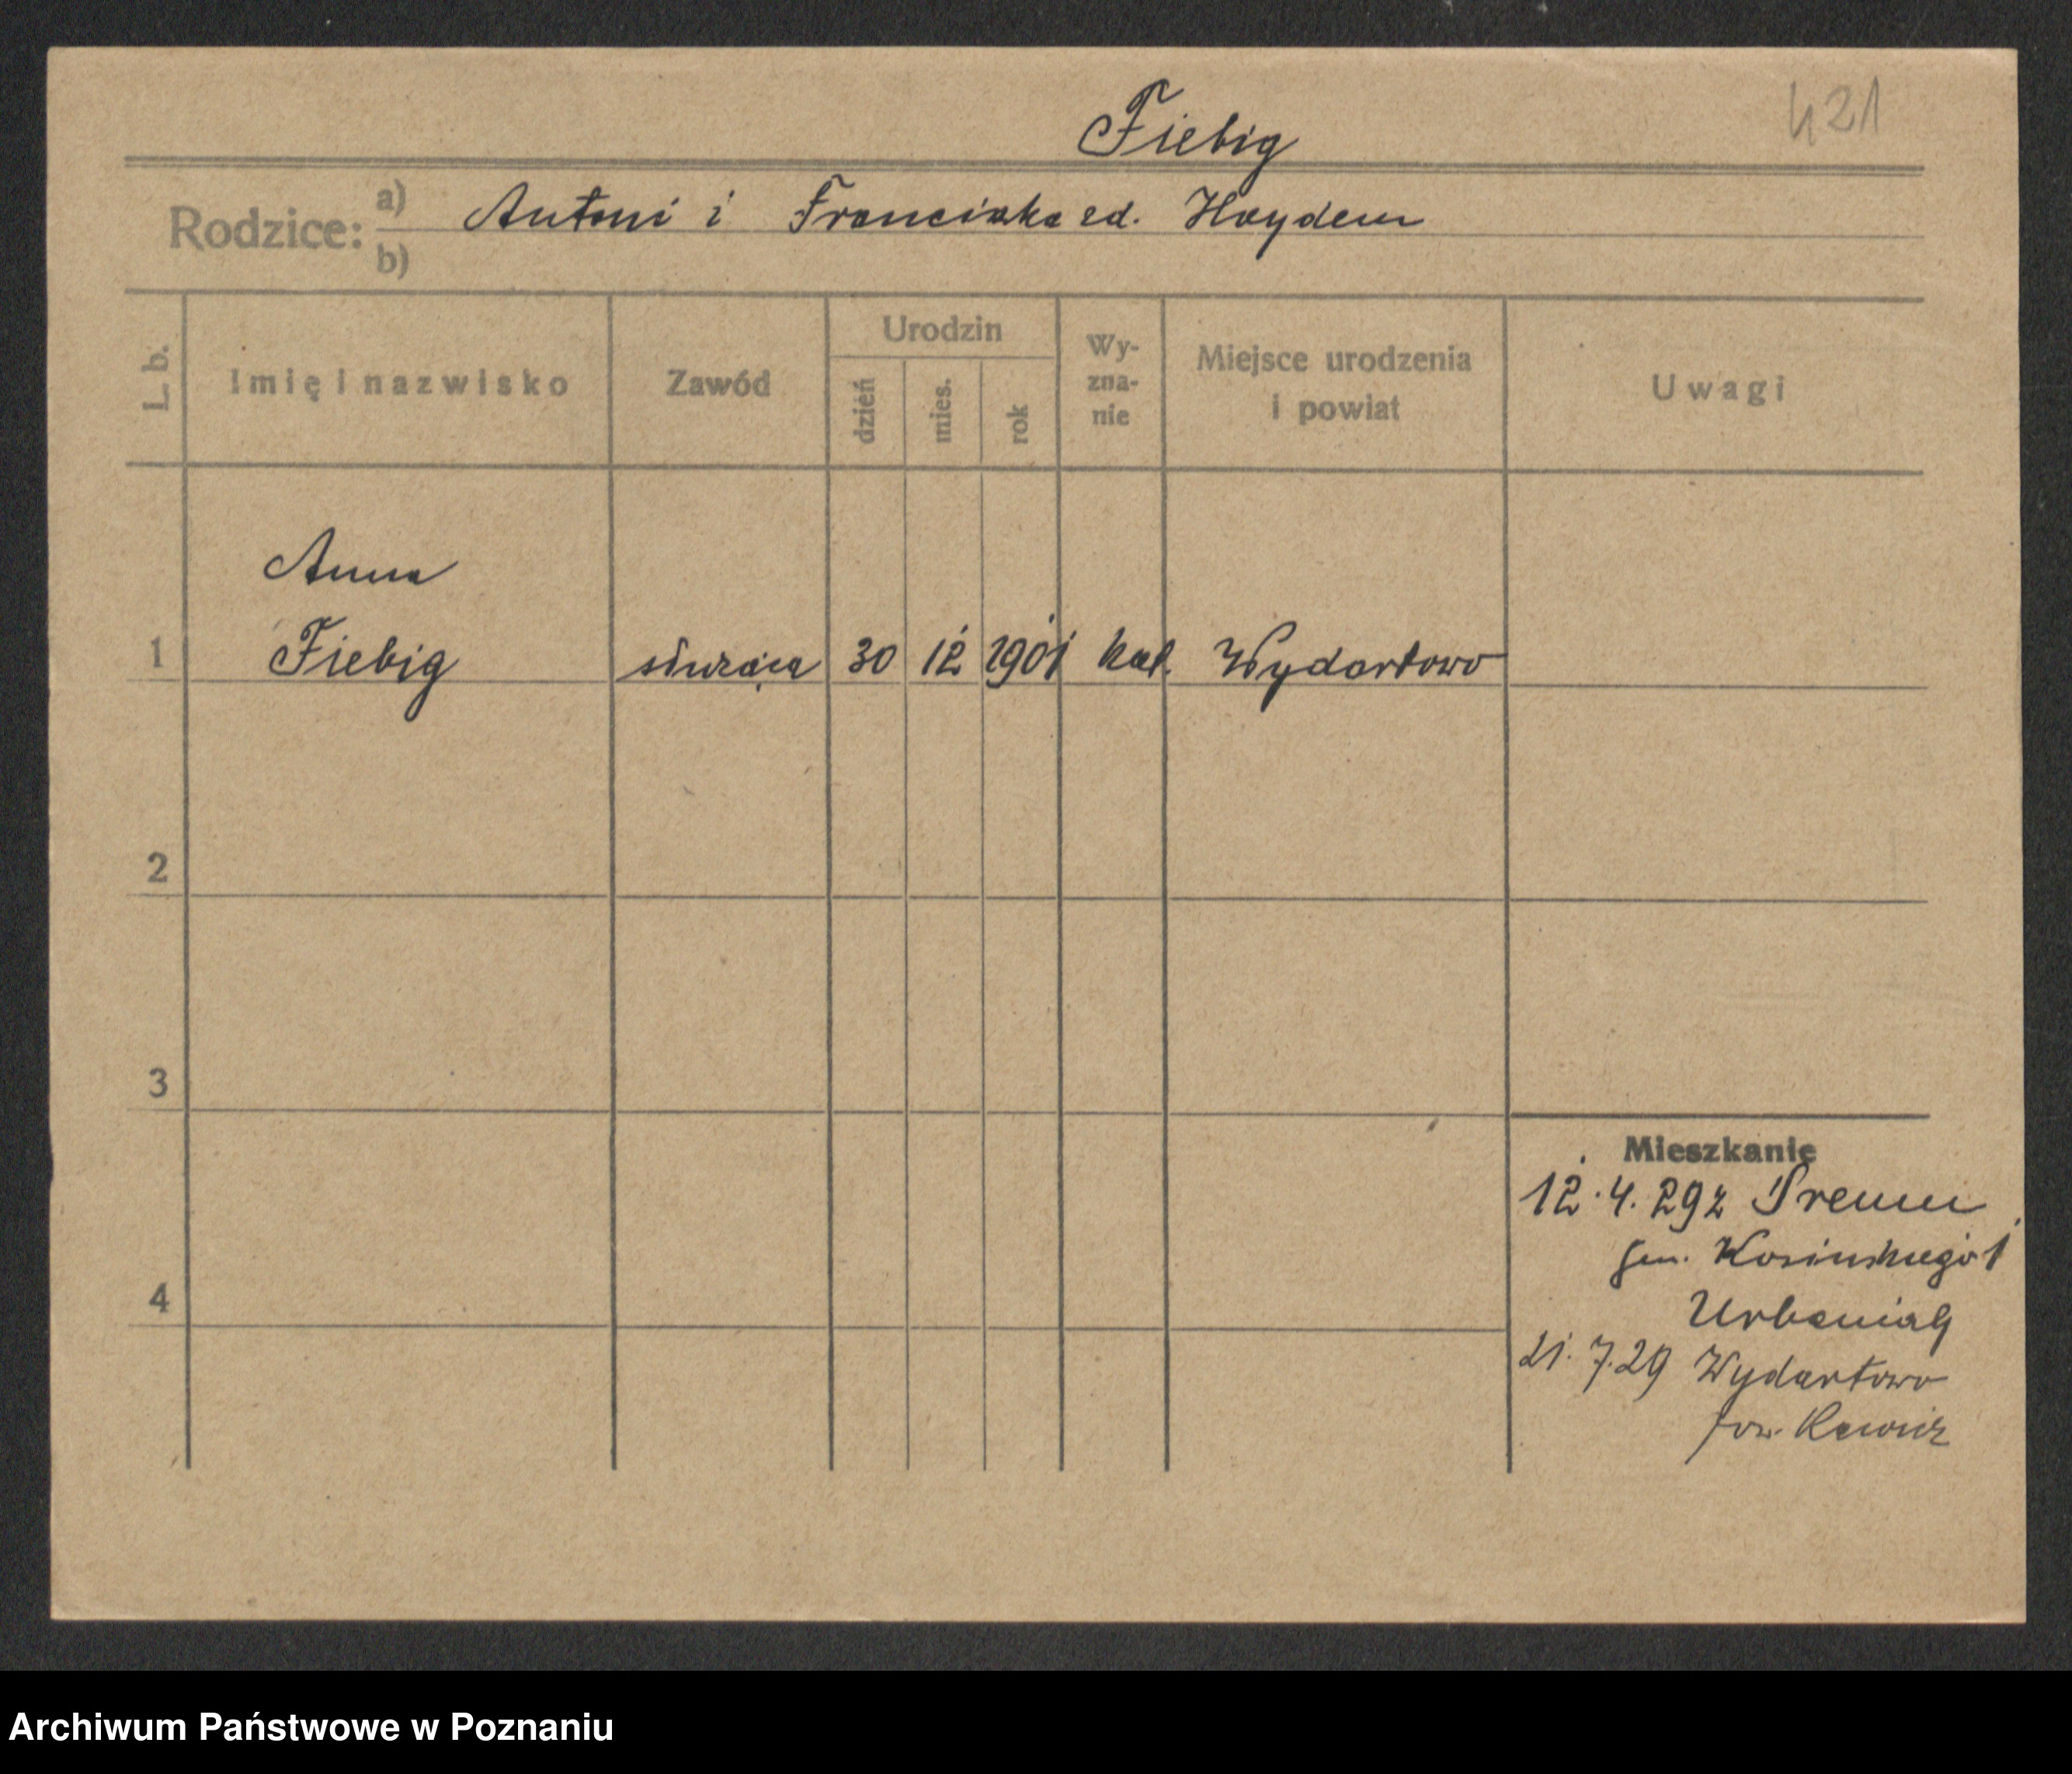 421
Fiebig
Rodzice: a) Antoni i Franciszka zd. Heyden
b)
L. b.
Imię i nazwisko
Zawód
Urodzin
dzień
mies.
rok
Wy-
zna-
nie
Miejsce urodzenia
i powiat
Uwagi
Anna
1 Fiebig służąca 30 12 1901 kat. Wydartowo
2
3
4
Mieszkanie
12.4.29 z Śremu
gen. Kosińskiego 1
Urbaniak
21.7.29 Wydartowo
pow. Rawicz
Archiwum Państwowe w Poznaniu